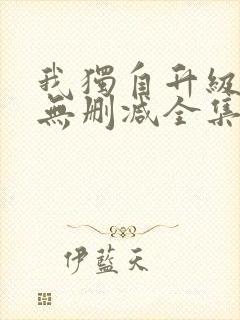 我獨自升級
無刪減全集
伊藍天